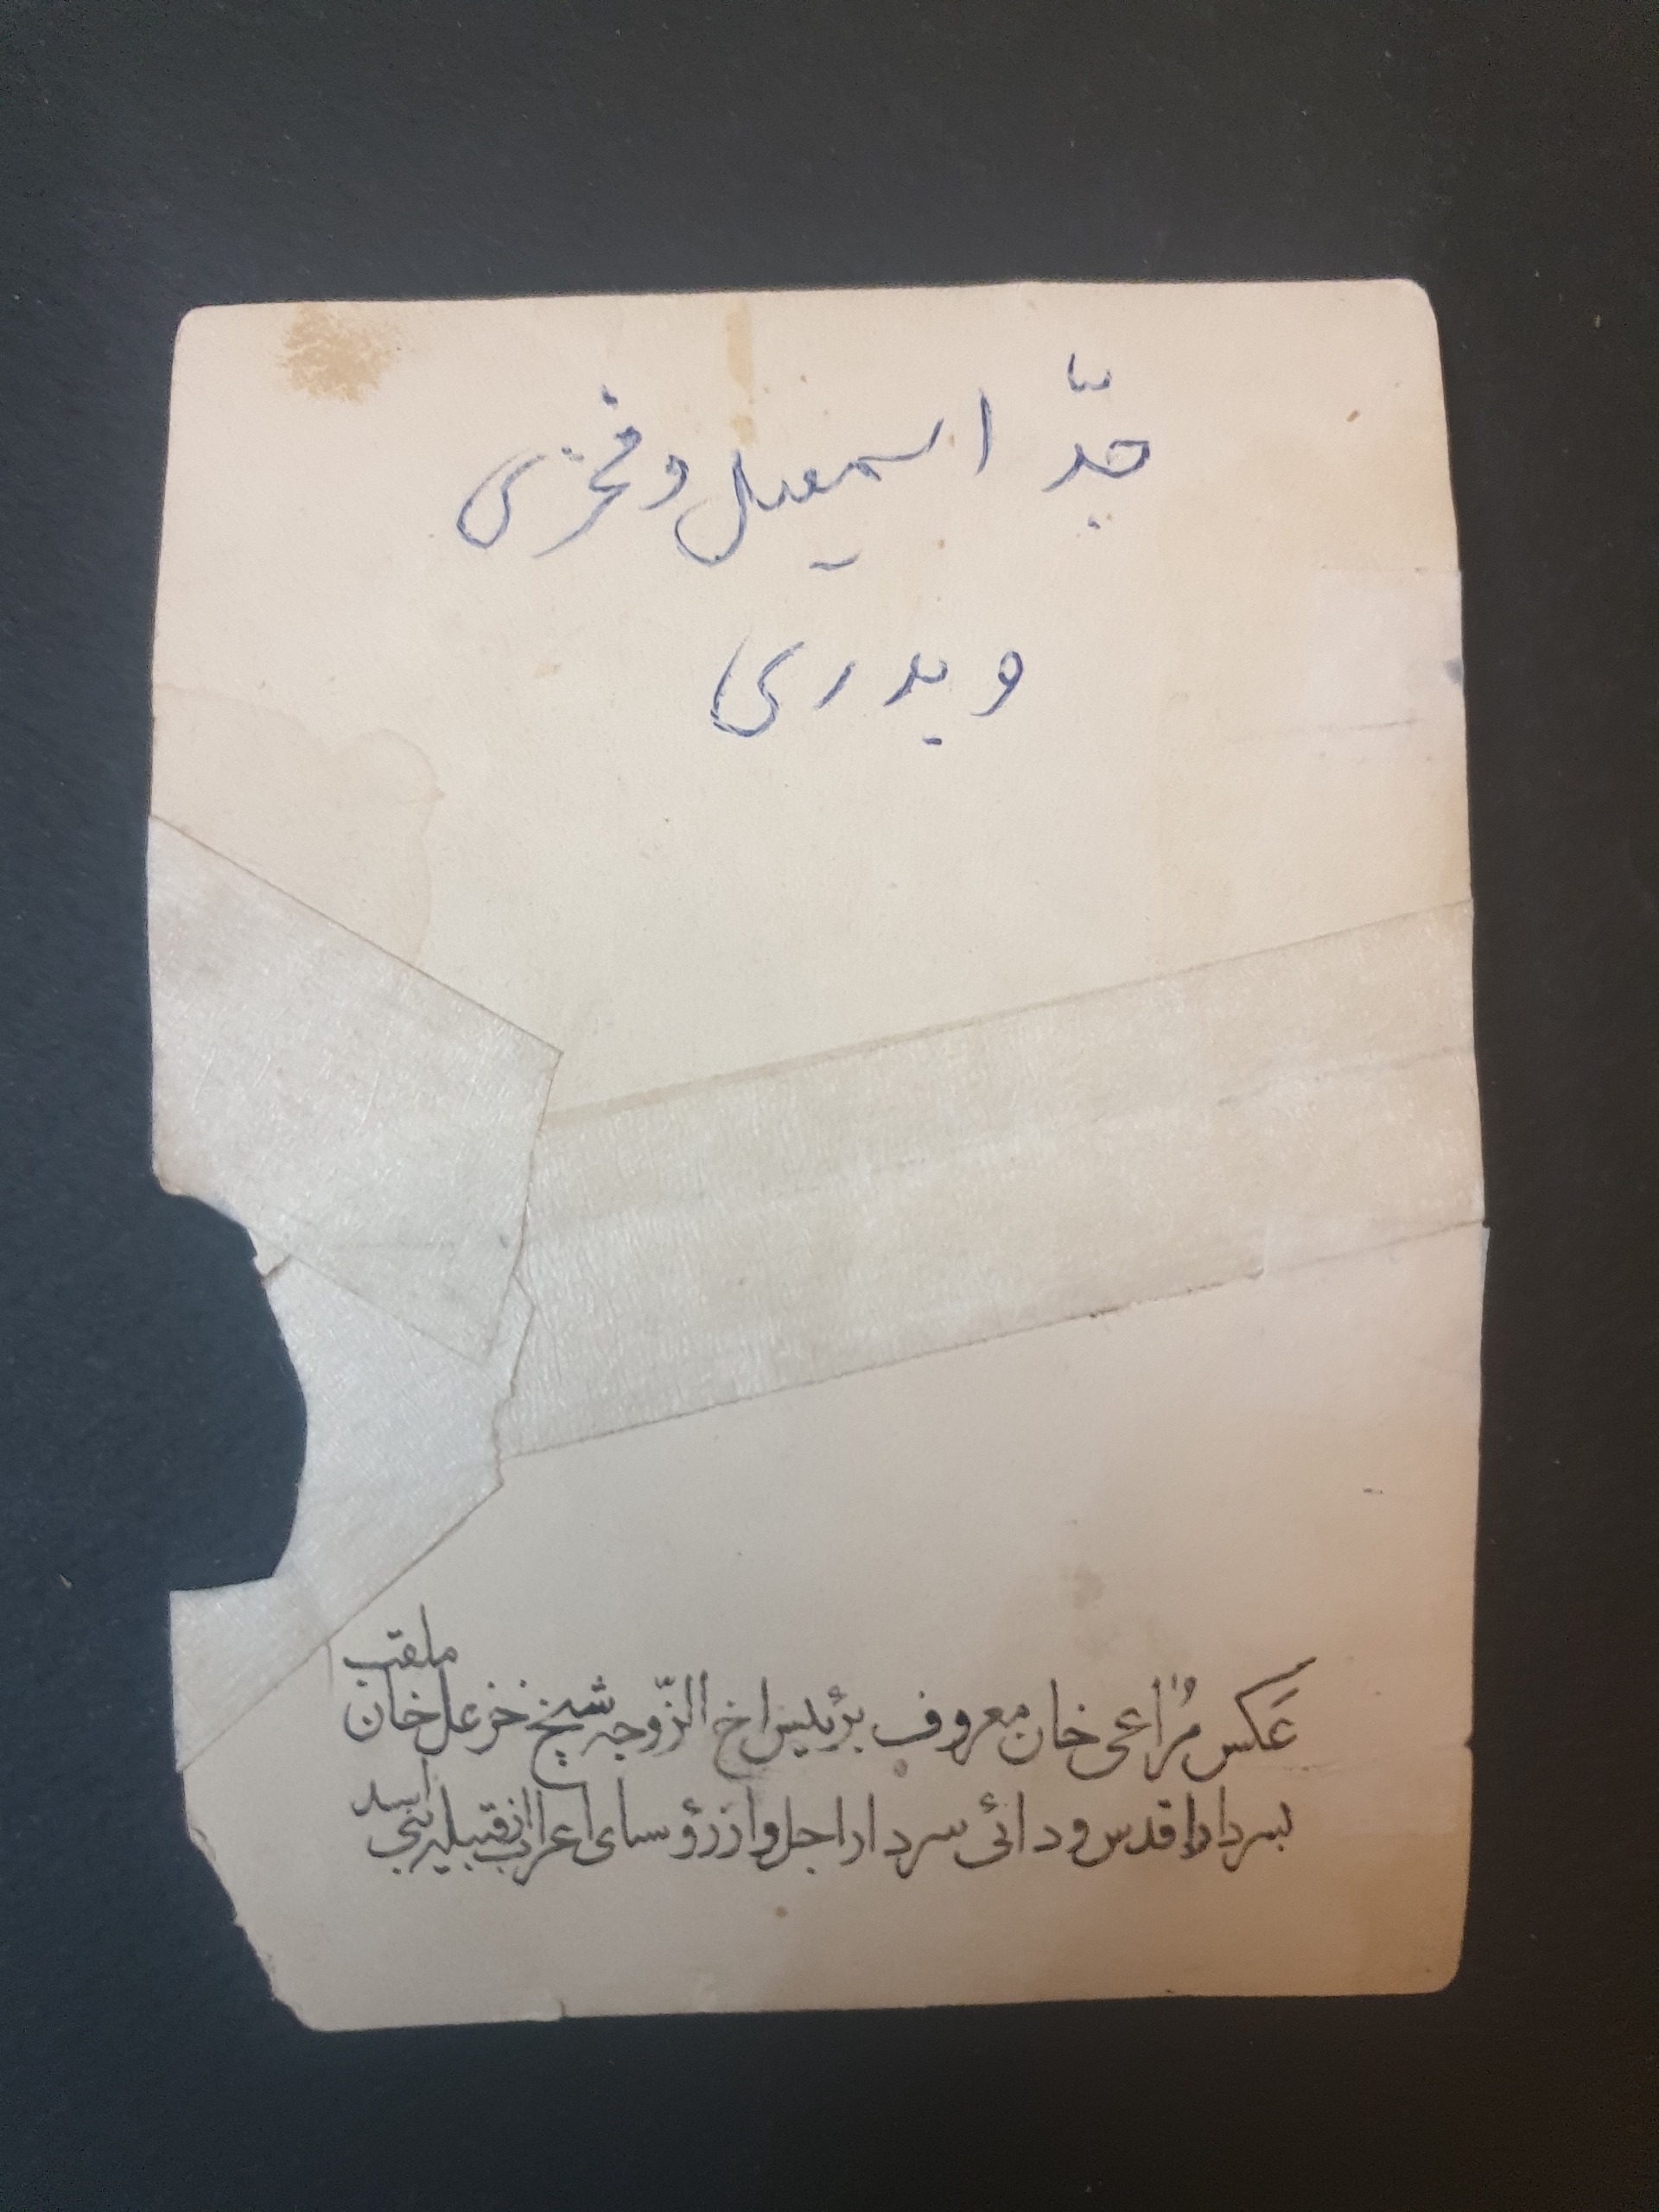 جدّ اسمعیل و فخری
و بدری
عَکس مُراعی خان معروف برئیس اخ الزّوجه شیخ خزعل خان ملقب
بسردار اقدس و دائی سردار اجل و از رؤسای اعراب از قبیله بنی اسد